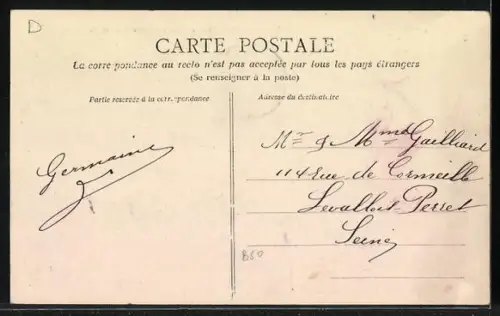 D
CARTE POSTALE
La correspondance au recto n'est pas acceptée par tous les pays étrangers
(Se renseigner à la poste)
Partie reservée à la correspondance
Adresse du destinataire
Germaine
Mr & Mme Gailliard
114 rue de Cormeille
Levallois-Perret
Seine